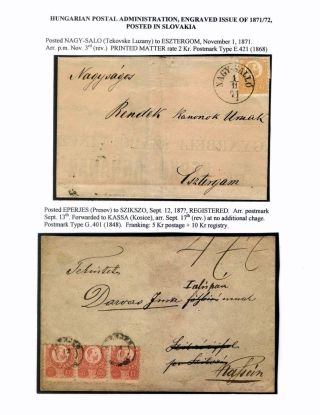 HUNGARIAN POSTAL ADMINISTRATION, ENGRAVED ISSUE OF 1871/72,
POSTED IN SLOVAKIA
Posted NAGY-SALO (Tekovske Luzany) to ESZTERGOM, November 1, 1871.
Arr. p.m. Nov. 3rd (rev.) PRINTED MATTER rate 2 Kr. Postmark Type E.421 (1868)
NAGY-SALLÓ
1
11
71
Nagyságos
Renszeld Kanonok Urnak
Esztergam
Posted EPERJES (Presov) to SZIKSZO, Sept. 12, 187?, REGISTERED. Arr. postmark
Sept. 13th. Forwarded to KASSA (Kosice), arr. Sept. 17th (rev.) at no additional chage.
Postmark Type G.401 (1848). Franking: 5 Kr postage = 10 Kr registry.
Tekintetes
Darvas Imre